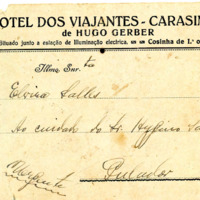 HOTEL DOS VIAJANTES - CARASIN
de HUGO GERBER
situado junto a estação de illuminação electrica. Cosinha de 1.ª o
Illma Snr.ta
Elvira Salles
Ao cuidado do Sr Hygino
Pulador